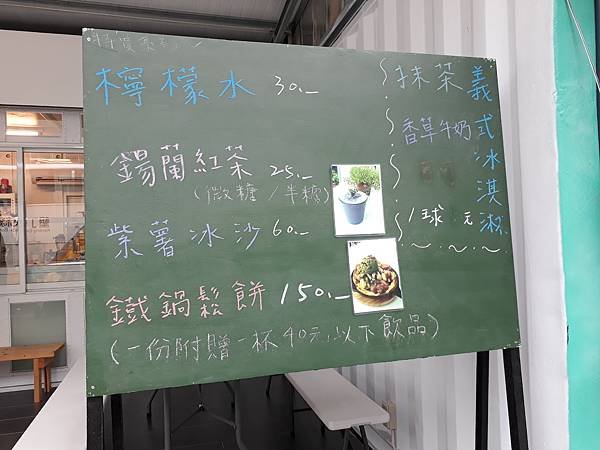 檸檬水 30.-
錫蘭紅茶 25.-
(微糖/半糖)
紫薯冰沙 60.-
鐵鍋鬆餅 150.-
(一份附贈一杯40元以下飲品)
義式冰淇淋
抹茶
香草牛奶
1球 元